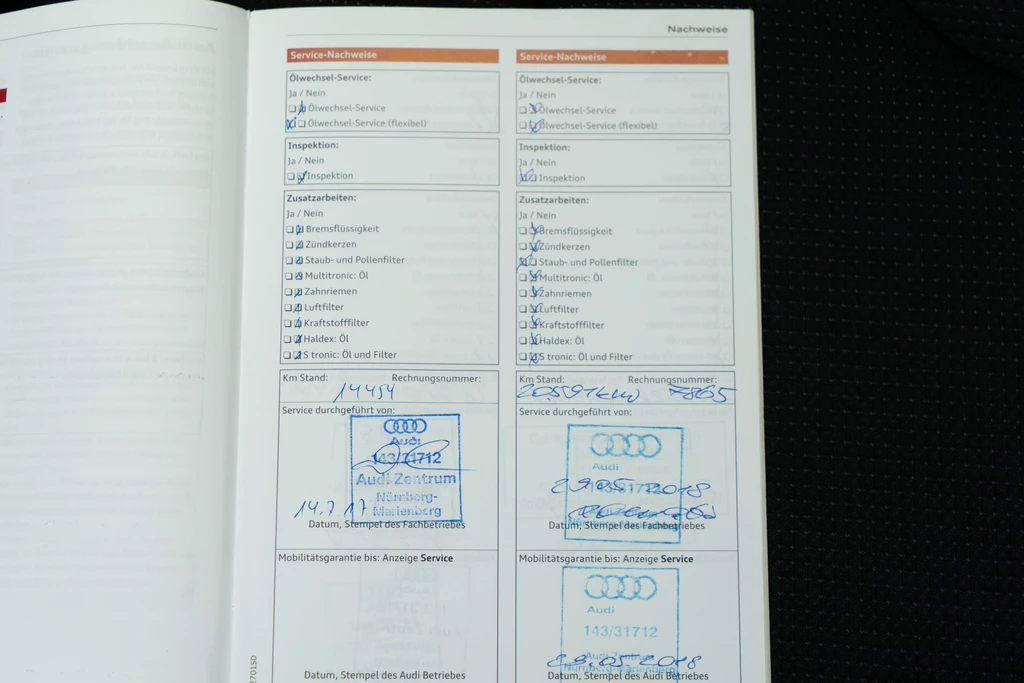 Nachweise
Service-Nachweise
Ölwechsel-Service:
Ja / Nein
Ölwechsel-Service
Ölwechsel-Service (flexibel)
Inspektion:
Ja / Nein
Inspektion
Zusatzarbeiten:
Ja / Nein
Bremsflüssigkeit
Zündkerzen
Staub- und Pollenfilter
Multitronic: Öl
Zahnriemen
Luftfilter
Kraftstofffilter
Haldex: Öl
S tronic: Öl und Filter
Km Stand: Rechnungsnummer:
14454
Service durchgeführt von:
Audi
143/31712
Audi Zentrum
Nürnberg-
14.7.17 Marienberg
Datum, Stempel des Fachbetriebes
Mobilitätsgarantie bis: Anzeige Service
Datum, Stempel des Audi Betriebes
Service-Nachweise
Ölwechsel-Service:
Ja / Nein
Ölwechsel-Service
Ölwechsel-Service (flexibel)
Inspektion:
Ja / Nein
Inspektion
Zusatzarbeiten:
Ja / Nein
Bremsflüssigkeit
Zündkerzen
Staub- und Pollenfilter
Multitronic: Öl
Zahnriemen
Luftfilter
Kraftstofffilter
Haldex: Öl
S tronic: Öl und Filter
Km Stand: Rechnungsnummer:
20591km 7865
Service durchgeführt von:
Audi
143/31712
29.05.2018
Datum, Stempel des Fachbetriebes
Mobilitätsgarantie bis: Anzeige Service
Audi
143/31712
Audi Zentrum
29.05.2018
Nürnberg-Marienberg
Datum, Stempel des Audi Betriebes